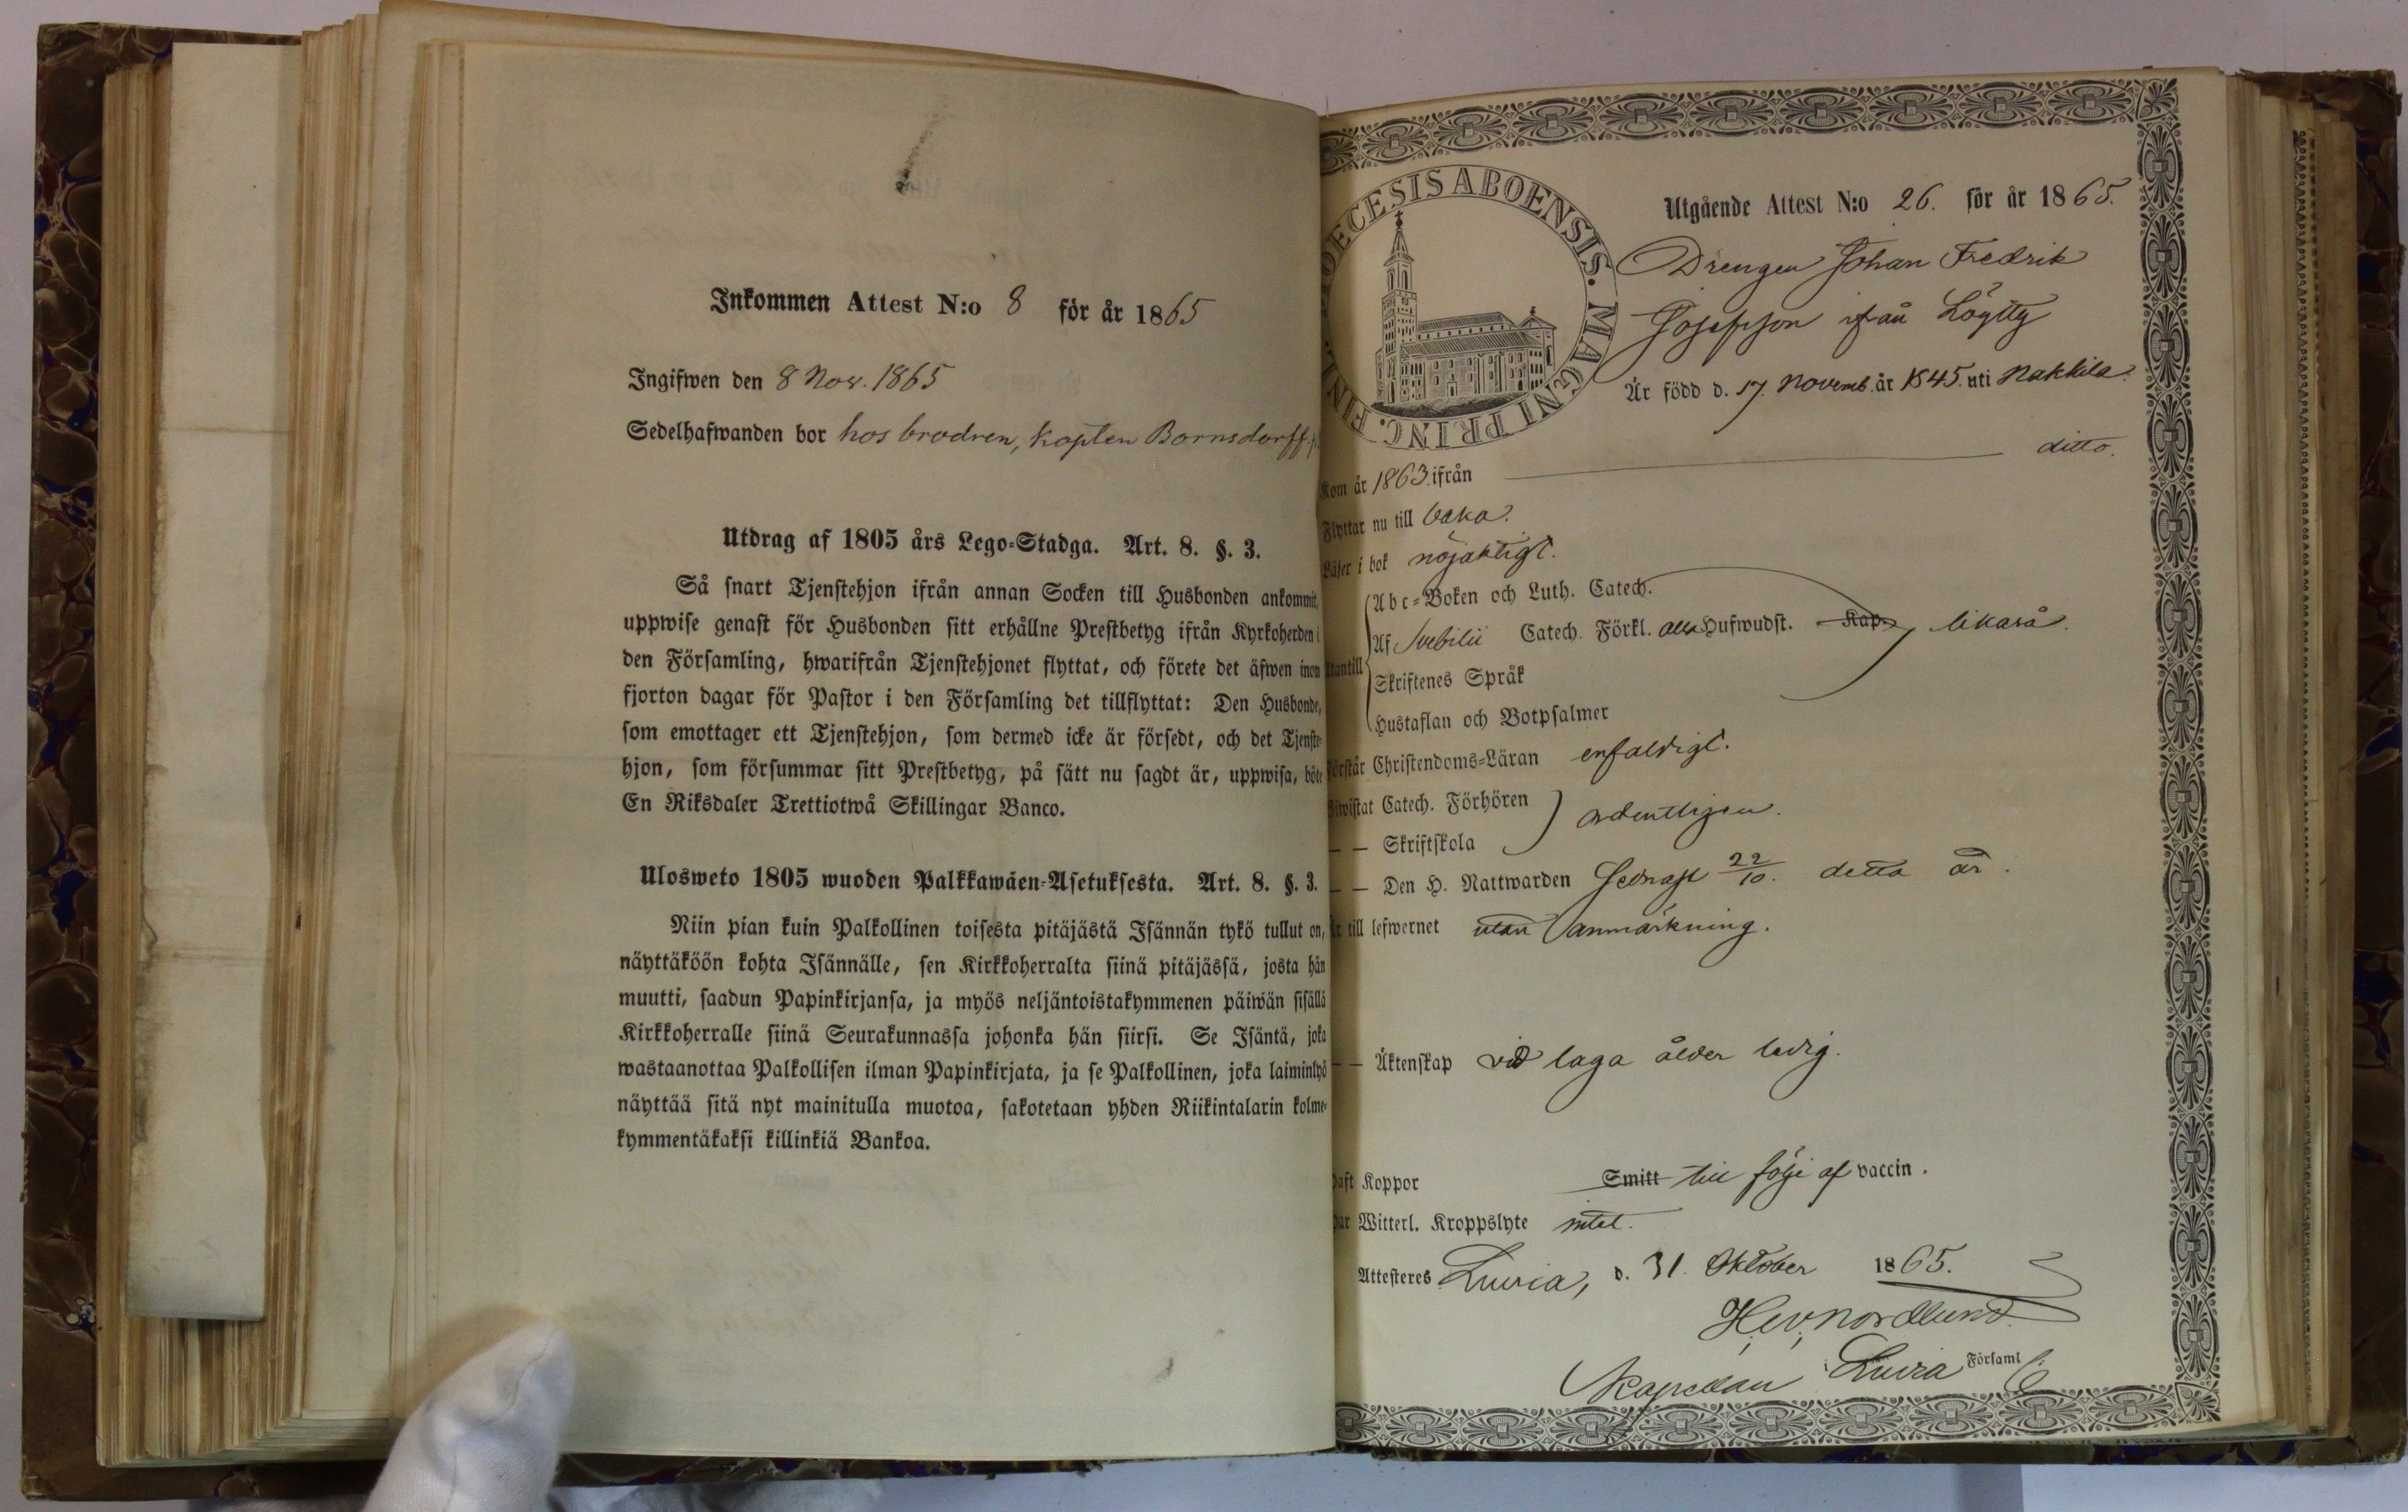 Inkommen Attest N:o 8 för år 1865
Ingifwen den 8 Nov. 1865
Sedelhafwanden bor hos brodren, kapten Bornsdorff
Utdrag af 1805 års Lego-Stadga. Art. 8. §. 3.
Så snart Tjenstehjon ifrån annan Socken till Husbonden ankommit,
uppwise genast för Husbonden sitt erhållne Prestbetyg ifrån Kyrkoherden i
den Församling, hwarifrån Tjenstehjonet flyttat, och förete det äfwen inom
fjorton dagar för Pastor i den Församling det tillflyttat: Den Husbonde,
som emottager ett Tjenstehjon, som dermed icke är försedt, och det Tjenste-
hjon, som försummar sitt Prestbetyg, på sätt nu sagdt är, uppwisa, böte
En Riksdaler Trettiotwå Skillingar Banco.
Ulosweto 1805 wuoden Palkkawäen-Asetuksesta. Art. 8. §. 3.
Niin pian kuin Palkollinen toisesta pitäjästä Isännän tykö tullut on,
näyttäköön kohta Isännälle, sen Kirkkoherralta siinä pitäjässä, josta hän
muutti, saadun Papinkirjansa, ja myös neljäntoistakymmenen päiwän sisällä
Kirkkoherralle siinä Seurakunnassa johonka hän siirsi. Se Isäntä, joka
wastaanottaa Palkollisen ilman Papinkirjata, ja se Palkollinen, joka laiminlyö
näyttää sitä nyt mainitulla muotoa, sakotetaan yhden Riikintalarin kolme-
kymmentäkaksi killinkiä Bankoa.
DIOECESIS ABOENSIS. MAGNI PRINC. FINL.
Utgående Attest N:o 26. för år 1865.
Drengen Johan Fredrik
Josefsson ifrån Löytty
Är född d. 17. Novemb. år 1845. uti Nakkila.
Kom år 1863. ifrån ditto.
Flyttar nu till baka.
Läser i bok nöjaktigt.
Abc-Boken och Luth. Catech.
Utantill Af Svebilii Catech. Förkl. alla Hufwudst. Kap. likaså.
Skriftenes Språk
Hustaflan och Botpsalmer
Förstår Christendoms-Läran enfaldigt.
Biwistat Catech. Förhören ordentligen.
— — Skriftskola
— — Den H. Nattwarden sednast 22/10. detta år.
Är till lefwernet utan anmärkning.
— — Äktenskap vid laga ålder ledig.
Haft Koppor Smitt till följe af vaccin.
Har Witterl. Kroppslyte intet.
Attesteres Luvia, d. 31. Oktober 1865.
Nordlund
Kapellan i Luvia Församl